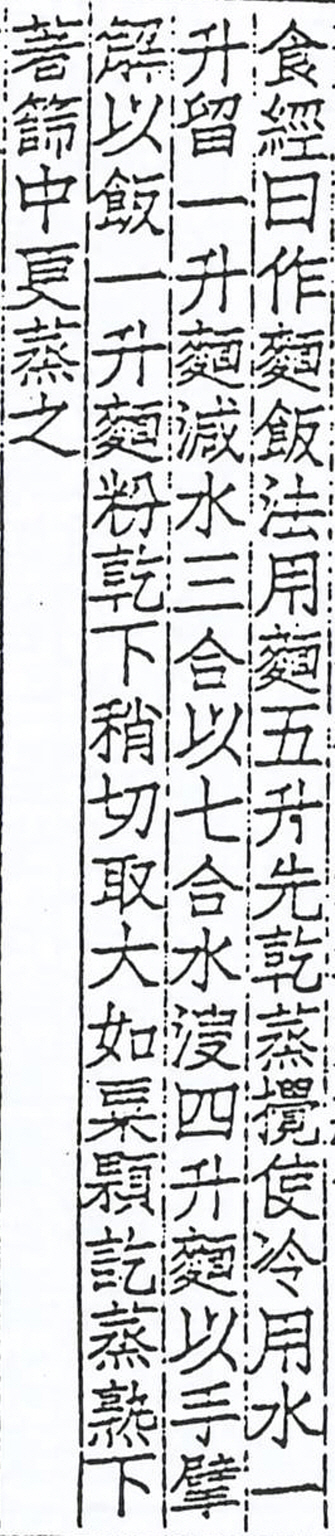 食經曰作麵飯法用麵五升先乾蒸攪使冷用水一
升留一升麵減水三合以七合水溲四升麵以手擘
解以飯一升麵粉乾下稍切取大如粟顆訖蒸熟下
著篩中更蒸之